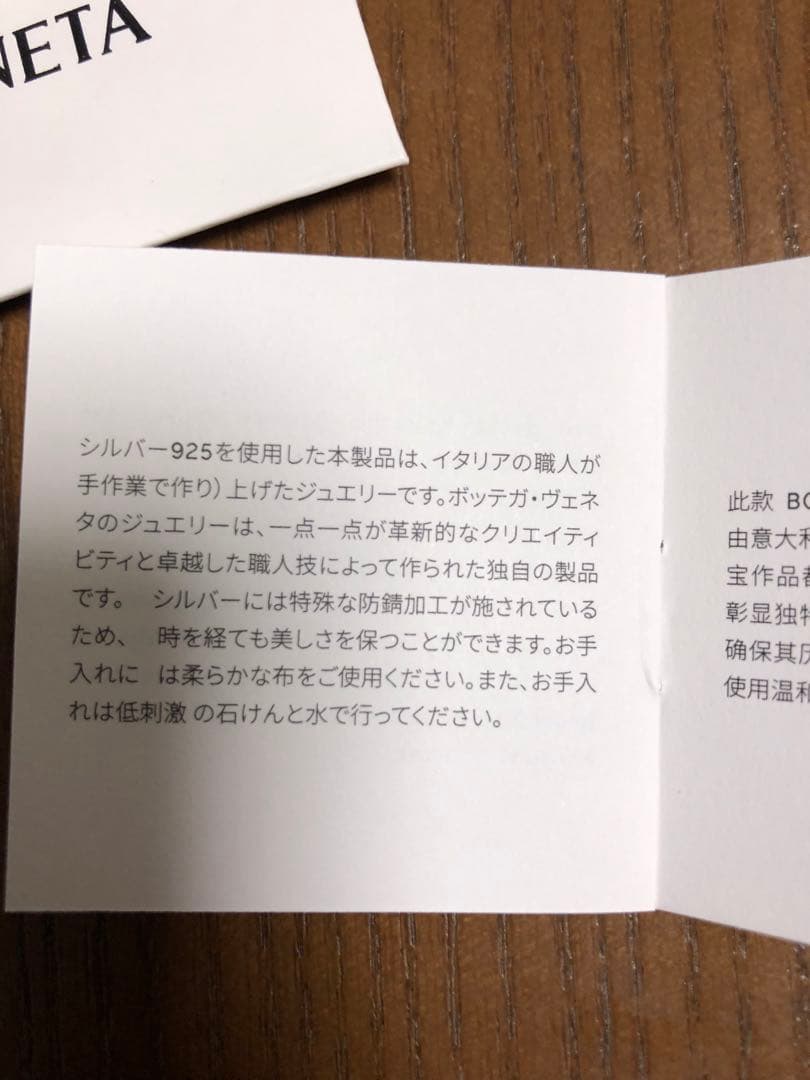 NETA
シルバー925を使用した本製品は、イタリアの職人が
手作業で作り）上げたジュエリーです。ボッテガ・ヴェネ
タのジュエリーは、一点一点が革新的なクリエイティ
ビティと卓越した職人技によって作られた独自の製品
です。 シルバーには特殊な防錆加工が施されている
ため、 時を経ても美しさを保つことができます。お手
入れに は柔らかな布をご使用ください。また、お手入
れは低刺激 の石けんと水で行ってください。
此款 BO
由意大利
宝作品都
彰显独特
确保其历
使用温和